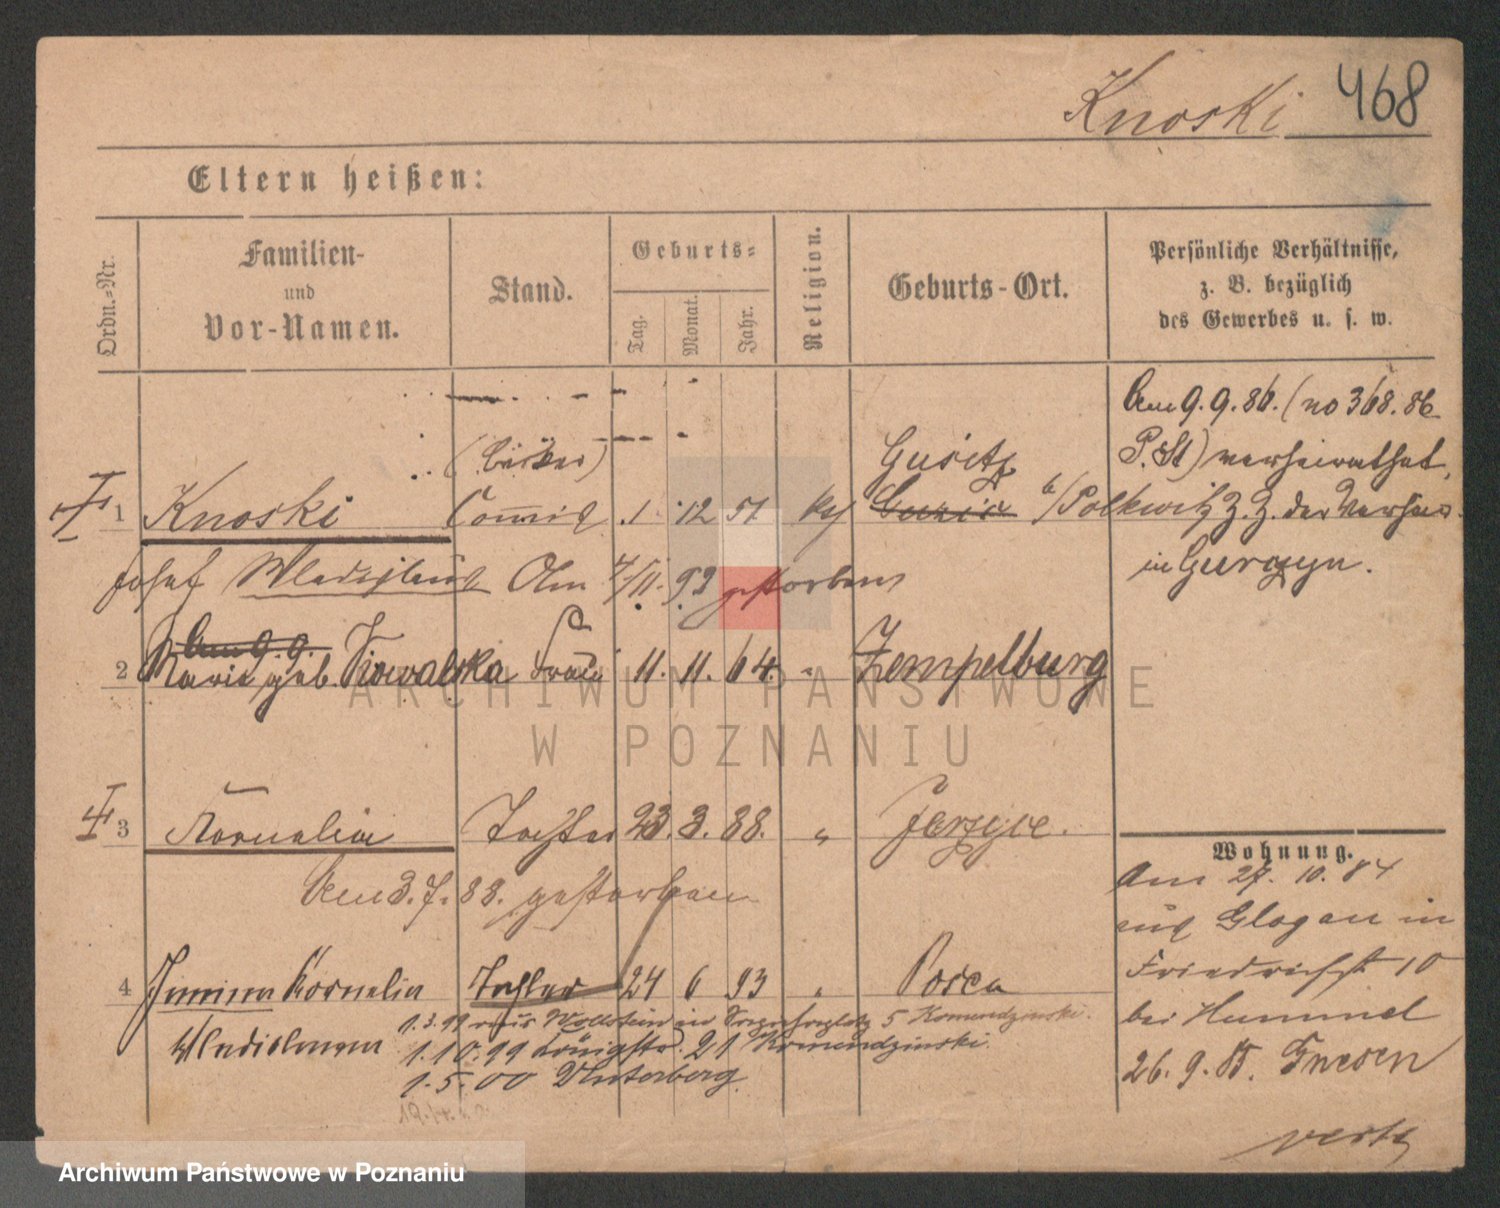 Knoski 468
Eltern heißen:
Ordn.=Nr.
Familien-
und
Vor-Namen.
Stand.
Geburts=
Tag.
Monat.
Jahr.
Religion.
Geburts-Ort.
Persönliche Verhältnisse,
z. B. bezüglich
des Gewerbes u. s. w.
Am 9. 9. 86. (no 368. 86
P. St) verheirathet,
z. Z. der Verheir.
in Gurczyn.
(Bäcker)
Gusitz
1 Knoski Commis 1 12 51 kat b/Polkwitz
Josef Wladislaus Am 4/11. 92 gestorben
Am 9. 9.
2 Marie geb. Kowalska Frau 11. 11. 64. " Zempelburg
3 Kornelia Tochter 23. 3. 88. " Jerzyce.
Am 3. 7. 88. gestorben
4 Janina Kornelia Tochter 24 6 93 " Posen
Wladislawa
1. 3. 99 aus Wollstein in 5 Komendzinski.
1. 10. 99 Königstr. 21 Komendzinski.
1. 5. 00 Unterberg
Wohnung.
Am 27. 10. 84
aus Glogau in
Friedrichst 10
bei Hummel
26. 9. 85. Gnesen
verte
ARCHIWUM PAŃSTWOWE
W POZNANIU
Archiwum Państwowe w Poznaniu